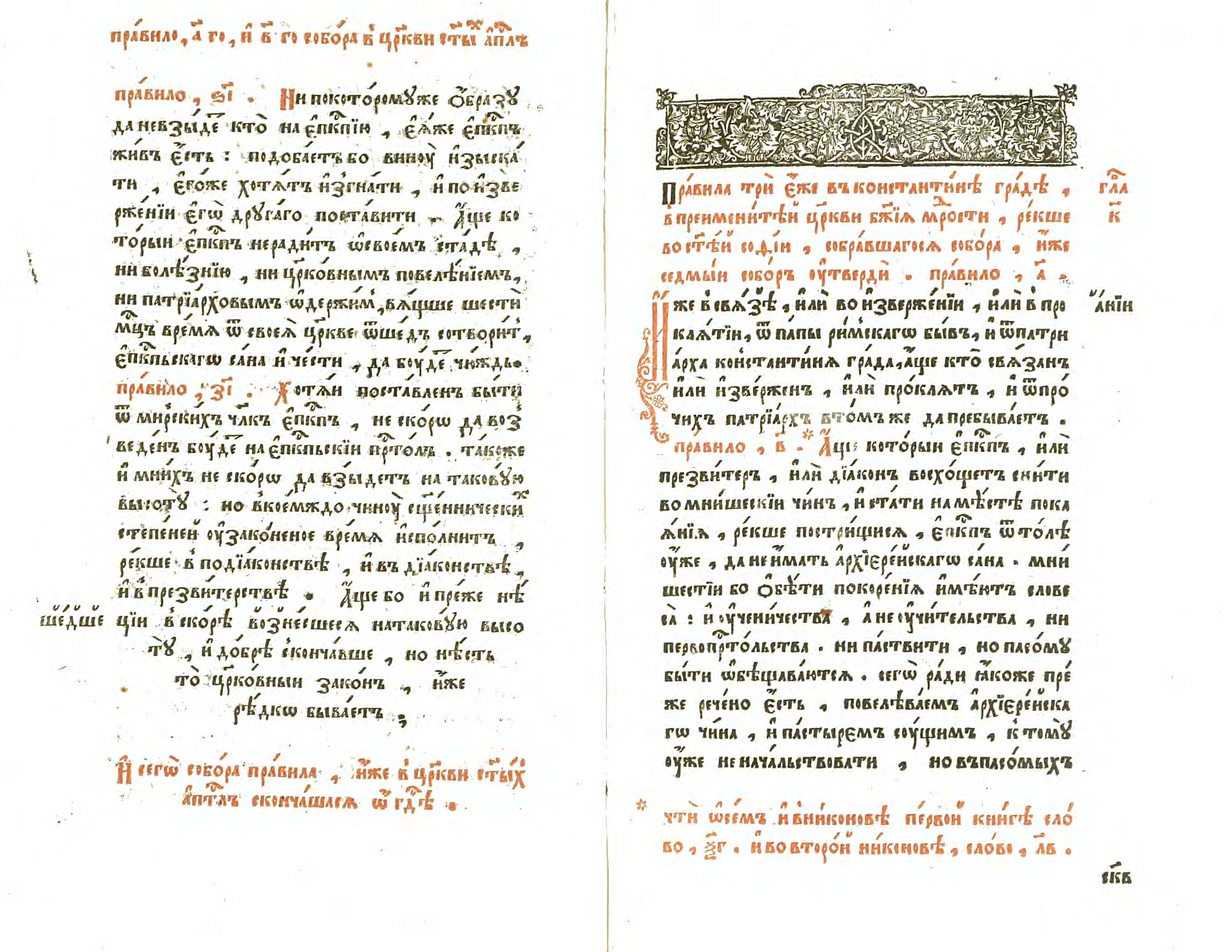 пра́вило, а҃ го, и҆ в҃ го собо́ра в҆ цр҃кви ст҃ы́хъ а҆пⷭ҇лъ
пра́вило, ѕ҃і. Ни покото́ромуже ѻ҆́бразу
да невзы́деⷮ кто̀ на є҆пⷭ҇кпїю, є҆ѧ́же є҆пⷭ҇кпъ
жи́въ є҆́сть : подоба́етъ бо винꙋ̀ и҆зыска́
ти, є҆го́же хотѧ́тъ и҆згна́ти, и҆ по и҆зве
рже́нїи є҆гѡ̀ друга́го поста́вити. А҆́ще ко
то́рыи є҆пⷭ҇кпъ неради́тъ ѡ҆свое́мъ ста́дѣ,
ни болѣ́знїю, ни цр҃ко́внымъ повелѣ́нїемъ,
ни патрїа́рховымъ ѡ҆держи́м, вѧ́щше шести̑
мⷭ҇цъ вре́мѧ ѿ своеѧ̀ цр҃кве ѿше́дъ сотвори́т,
є҆пⷭ҇кпьскагѡ са́на и҆ че́сти, да бꙋ́деⷮ чю́ждь.
пра́вило, з҃і. Хотѧ́и поста́вленъ бы́ти
ѿ ми́рскихъ чл҃къ є҆пⷭ҇кпъ, не ско́рѡ да воз̾
веде́нъ бꙋ́деⷮ на є҆пⷭ҇кпьскїи прⷭ҇то́лъ. та́коже
и҆ мни́хъ не ско́рѡ да взы́детъ на такову́ю
высоту̀ : но вкое́мждо чинꙋ̀ сщ҃е́нническиⷯ
степене́й ѹ҆зако́неное вре́мѧ и҆спо́лнитъ,
ре́кше в҆ подїа́конствѣ, и҆ въ дїа́конствѣ,
и҆ в презви́терствѣ. А҆́ще бо и҆ пре́же нѣ́
цїи в҆ско́рѣ возне́сшеесѧ натакову́ю высо
шѣ́дше
ту̀, и҆ до́брѣ сконча́вше, но нѣ́сть
то̀ цр҃ко́вныи зако́нъ, и҆́же
рѣ́дкѡ быва́етъ ;
И҆ сегѡ̀ собо́ра пра́вила, и҆̀же в҆ цр҃кви ст҃ы́хъ
а҆пⷭ҇лъ сконча́шасѧ ѡ҆ гдⷭ҇ѣ.
Пра́вила трѝ є҆́же въ константи́нѣ гра́дѣ,
гла҃
к҃
в преимени́тѣй цр҃кви бж҃їѧ мⷣрости, ре́кше
во ст҃ѣ́й софі́и, собра́вшагосѧ собо́ра, и҆́же
седмы́и собо́ръ ѹ҆твердѝ. пра́вило, а҃.
И҆́же в҆свѧ́зѣ, и҆лѝ во и҆зверже́нїи, и҆лѝ в҆ про
а҆́нїи
каѧ́тїи, ѿ па́пы ри́мскагѡ бы́въ, и҆ ѿпатри
а́рха константи́нѧ гра́да, а҆́ще кто̀ свѧ́занъ
и҆лѝ и҆зве́ржен, и҆лѝ про́клѧтъ, и҆ ѿпро́
чихъ патрїа́рхъ в҆то́мъ же да пребыва́етъ.
пра́вило, в҃. * А҆́ще кото́рыи є҆пⷭ҇кпъ, и҆лѝ
презви́теръ, и҆лѝ дїа́конъ восхо́щетъ сни́ти
во мни́шескїи чи́нъ, и҆ ста́ти на мѣ́стѣ пока
ѧ́нїѧ, ре́кше постри́щисѧ, є҆пⷭ҇кпъ ѿто́лѣ
ѹ҆́же, да не и҆́мать а҆рхїере́йскагѡ са́на. мни́
шестїи бо ѻ҆бѣ́ти покоре́нїѧ и҆мѣ́ютъ слове
са̀ : и҆ ѹ҆чени́чества, а҆ не ѹ҆чи́тельства, ни
первопрⷭ҇то́льства. ни па́ствити, но пасо́му
бы́ти ѡ҆бѣщава́ютсѧ. сегѡ̀ ра́ди ꙗ҆́коже пре́
же рече́но є҆́сть, повелѣва́емъ а҆рхїере́йска
гѡ чи́на, и҆ па́стыремъ сꙋ́щимъ, к҆ тому̀
ѹ҆́же не нача́льствовати, но въ пасо́мыхъ
* чтѝ ѡ҆се́мъ и҆ вни́коновѣ пе́рвой кни́гѣ сло́
во, ѯ҃г. и҆ во второ́й ни́коновѣ, сло́во, л҃в.
ск҃в